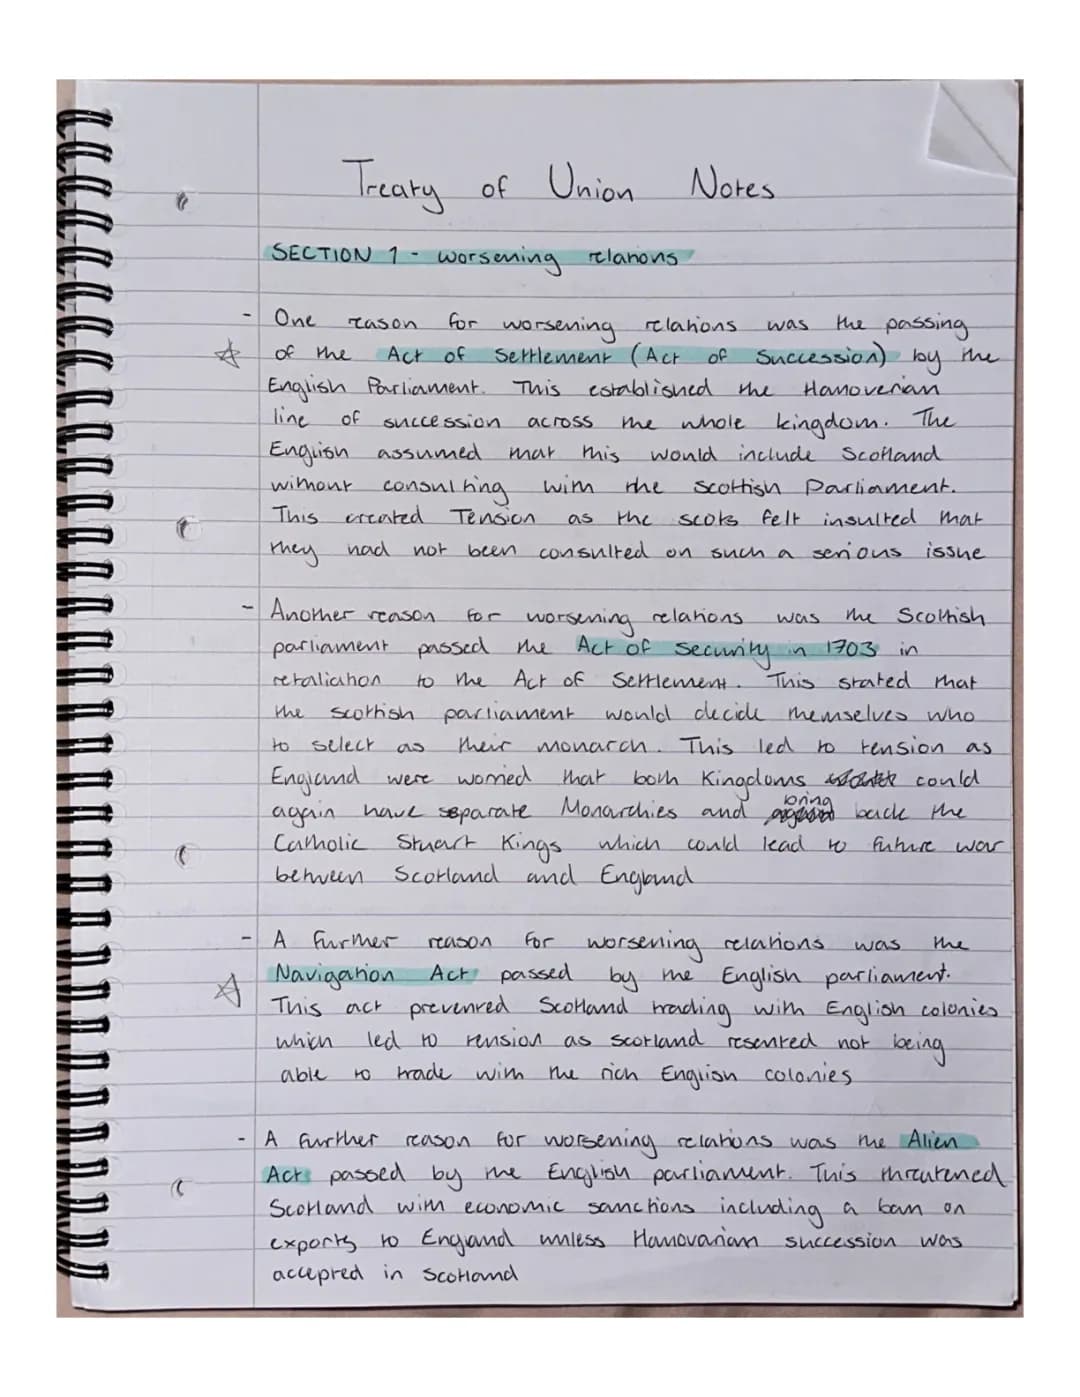 Treaty of Union Notes
SECTION 1 - worsening relations
- One reason for worsening relations was the passing
of the Act of Settlement (Act of Succession) by the
English Parliament. This established the Hanoverian
line of succession across the whole kingdom. The
English assumed that this would include Scotland
without consulting with the Scottish Parliament.
This created Tension as the scots felt insulted that
they had not been consulted on such a serious issue
- Another reason for worsening relations was the Scottish
parliament passed the Act of Security in 1703 in
retaliation to the Act of Settlement. This stated that
the scottish parliament would decide themselves who
to select as their monarch. This led to tension as
England were worried that both Kingdoms could
again have separate Monarchies and bring back the
Catholic Stuart Kings which could lead to future war
between Scotland and England
- A further reason for worsening relations was the
Navigation Act passed by the English parliament.
This act prevented Scotland trading with English colonies
which led to tension as scotland resented not being
able to trade with the rich English colonies
- A further reason for worsening relations was the Alien
Act passed by the English parliament. This threatened
Scotland with economic sanctions including a ban on
exports to England unless Hanovarian succession was
accepted in Scotland